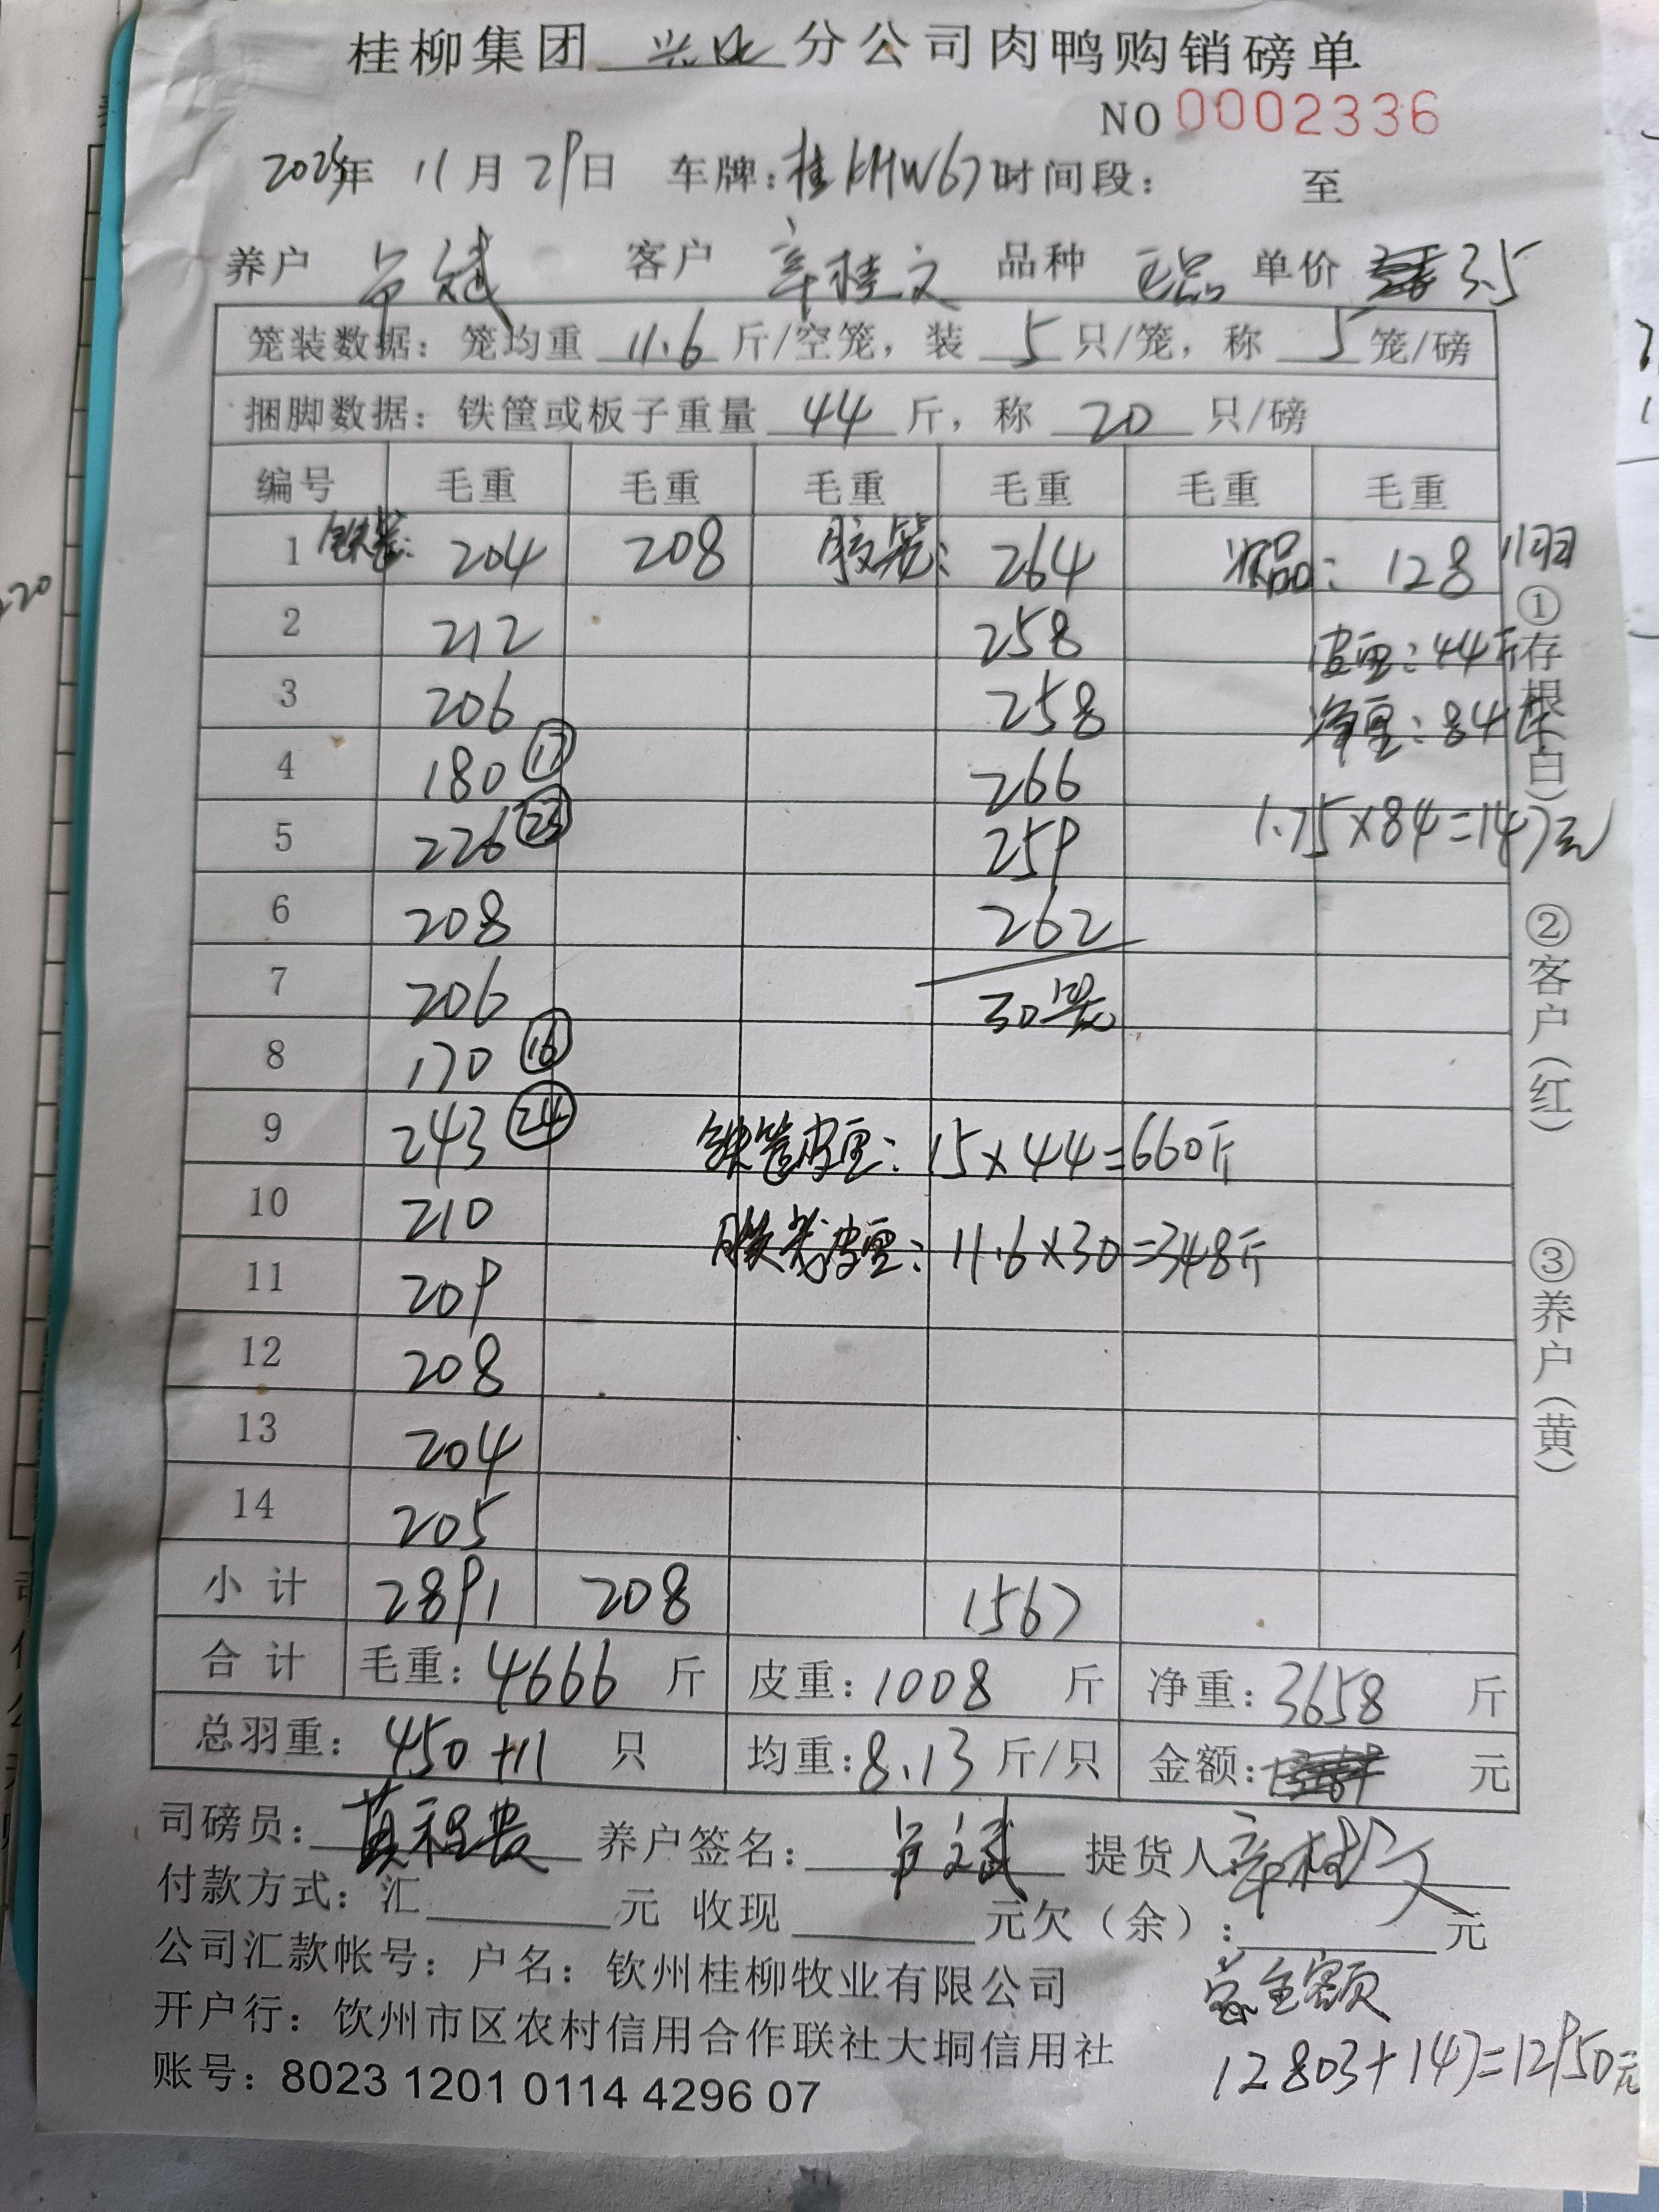 桂柳集团 兴业 分公司肉鸭购销磅单
NO 0002336
2025年 11月29日 车牌:桂KMW67 时间段: 至
养户 客户 辛桂文 品种 毛品 单价 3.5
笼装数据: 笼均重 11.6 斤/空笼, 装 5 只/笼, 称 5 笼/磅
捆脚数据: 铁筐或板子重量 44 斤, 称 20 只/磅
编号 毛重 毛重 毛重 毛重 毛重 毛重
1 铁笼: 204 208 胶笼: 264 次品: 128 11羽
2 212 258 皮重:44斤
3 206 258 净重:84斤
4 180 ⑰ 266
5 226 259 1.75×84=147元
6 208 262
7 206 30笼
8 170 ⑯
9 243 ㉔ 铁笼皮重: 15×44=660斤
10 210 胶笼皮重: 11.6×30=348斤
11 209
12 208
13 204
14 205
小计 2891 208 1567
合计 毛重: 4666 斤 皮重: 1008 斤 净重: 3658 斤
总羽重: 450+11 只 均重: 8.13 斤/只 金额: 元
①存根(白) ②客户(红) ③养户(黄)
司磅员: 养户签名: 提货人
付款方式: 汇 元 收现 元欠(余): 元
公司汇款帐号: 户名: 钦州桂柳牧业有限公司
总金额
开户行: 钦州市区农村信用合作联社大垌信用社
12803+147=12950元
账号: 8023 1201 0114 4296 07